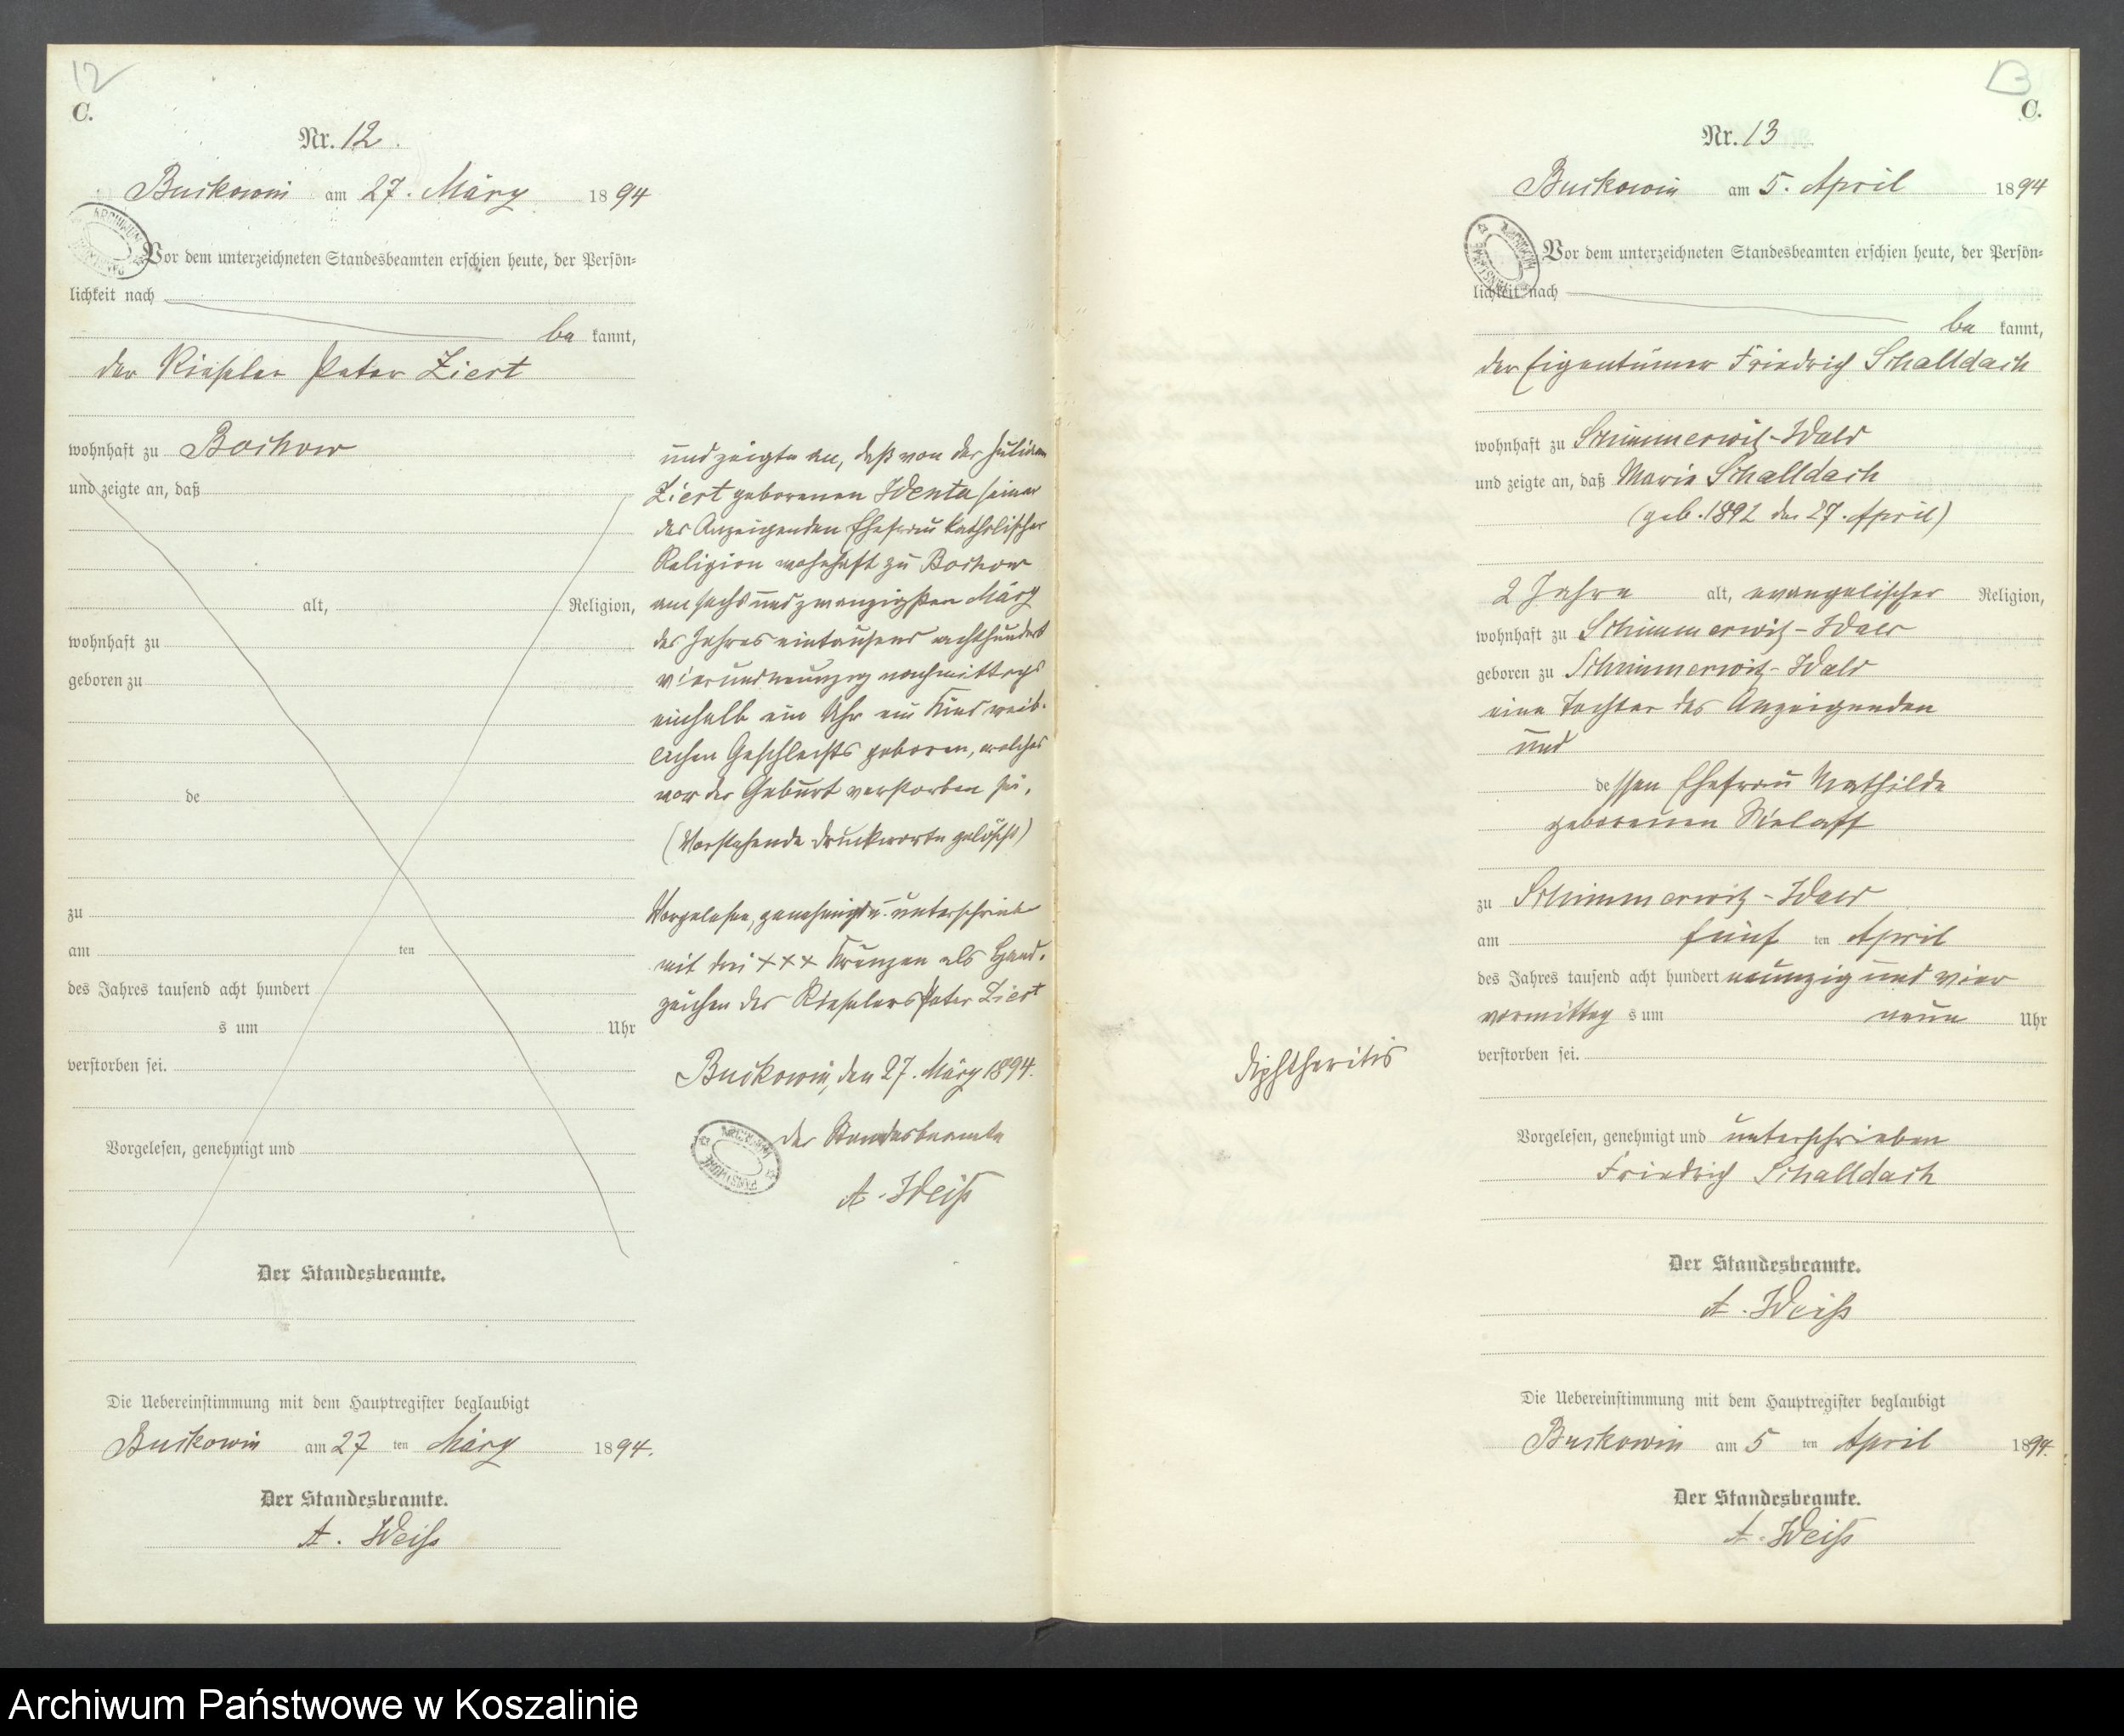 12
C.
Nr. 12.
Buckowin am 27. März 1894
Vor dem unterzeichneten Standesbeamten erschien heute, der Persön-
lichkeit nach
be kannt,
der Rieseler Peter Ziert
wohnhaft zu Bochow
und zeigte an, daß
alt, Religion,
wohnhaft zu
geboren zu
de
zu
am ten
des Jahres tausend acht hundert
s um Uhr
verstorben sei.
Vorgelesen, genehmigt und
Der Standesbeamte.
Die Uebereinstimmung mit dem Hauptregister beglaubigt
Buckowin am 27 ten März 1894.
Der Standesbeamte.
A. Weiß
und zeigte an, daß von der
Ziert geborenen Wenta seiner
des Anzeigenden Ehefrau katholischer
Religion wohnhaft zu Bochow
am sechs und zwanzigsten März
des Jahres eintausend achthundert
vierundneunzig nachmittags
einhalb ein Uhr ein Kind weib-
lichen Geschlechts geboren, welches
vor der Geburt verstorben sei.
(Vorstehende Druckworte gelöscht)
Vorgelesen, genehmigt u. unterschrieben
mit drei +++ Kreuzen als Hand-
zeichen des Rieselers Peter Ziert
Buckowin, den 27. März 1894.
der Standesbeamte
A. Weiß
13
C.
Nr. 13
Buckowin am 5. April 1894
Vor dem unterzeichneten Standesbeamten erschien heute, der Persön-
lichkeit nach
be kannt,
der Eigentümer Friedrich Schalldach
wohnhaft zu Schimmerwitz-Wald
und zeigte an, daß Maria Schalldach
(geb. 1892 den 27. April)
2 Jahre alt, evangelischer Religion,
wohnhaft zu Schimmerwitz-Wald
geboren zu Schimmerwitz-Wald
eine Tochter des Anzeigenden
und
dessen Ehefrau Mathilde
geborenen Sielaff
zu Schimmerwitz-Wald
am fünf ten April
des Jahres tausend acht hundert neunzig und vier
vormittag s um neun Uhr
verstorben sei.
Diphtheritis
Vorgelesen, genehmigt und unterschrieben
Friedrich Schalldach
Der Standesbeamte.
A. Weiß
Die Uebereinstimmung mit dem Hauptregister beglaubigt
Buckowin am 5 ten April 1894.
Der Standesbeamte.
A. Weiß
Archiwum Państwowe w Koszalinie